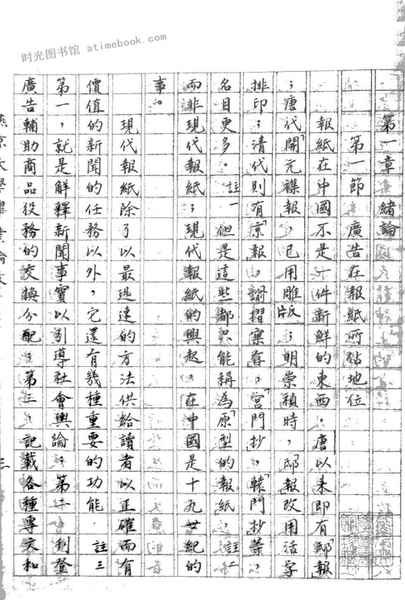 时光图书馆 atimebook.com
第一章 緒論
第一節 廣告在報紙所佔地位
報紙在中國不是一件新鮮的東西。唐以來即有邸報
；唐代開元襍報，已用雕版；明崇禎時，邸報改用活字
排印；清代則有京報，諭摺彙存，宮門抄，轅門抄等，
名目更多。註一 但是這些都只能稱為原型的報紙，註二
而非現代報紙。現代報紙的興起，在中國是十九世紀的
事。
現代報紙除了以最迅速的方法供給讀者以正確而有
價值的新聞的任務以外，它還有幾種重要的功能。註三
第一，就是解釋新聞事實以引導社會輿論；第二，刊登
廣告輔助商品役務的交換分配；第三，記載各種專文和
燕京大學畢業論文
三